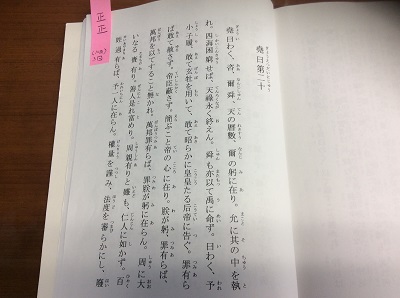 堯曰第二十
堯曰わく、咨、爾舜、天の暦數、爾の躬に在り。允に其の中を執
れ。四海困窮せば、天禄永く終えん。舜も亦以て禹に命ず。曰わく、予
小子履、敢て玄牡を用いて、敢て昭らかに皇皇たる后帝に告ぐ。罪有ら
ば敢て赦さず。帝臣蔽さず。簡ぶこと帝の心に在り。朕が躬、罪有らば、
萬邦を以てすること無かれ。萬邦罪有らば、罪朕が躬に在らん。周に大
いなる賚有り。善人是れ富めり。周親有りと雖も、仁人に如かず。百
姓過有らば、予一人に在らん。權量を謹み、法度を審らかにし、癈
正正